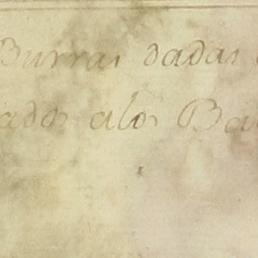 Burras dadas
ados alos Ba